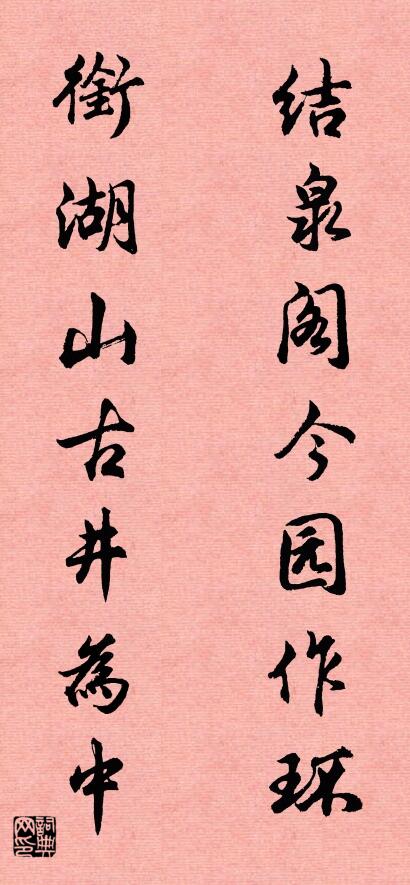 结泉阁今园作环
衔湖山古井為中
词典网印